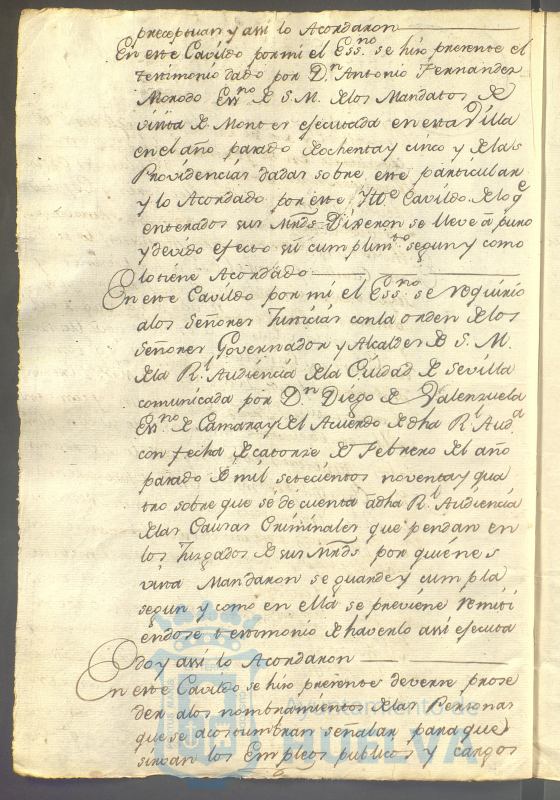 preceptuan y assi lo Acordaron
En este Cavildo por mi el Essno. se hizo presente el
testimonio dado por Dn. Antonio Fernandez
Morodo Esno. de S.M. de los Mandatos de
visita de Montes ejecutada en esta Villa
en el año pasado de ochenta y cinco y de las
Providencias dadas sobre este particular
y lo Acordado por este Ytte. Cavildo. de lo qe
enterados sus Mrds. Dixeron se lleve â puro
y devido efecto su cumplimto. segun y como
lo tiene Acordado
En este Cavildo por mi el Essno. se requirio
a los Señores Justicias con la orden de los
Señores Governador y Alcaldes de S. M.
de la Rl. Audiencia de la Ciudad de Sevilla
comunicada por Dn. Diego de Valenzuela
Esno. de Camara y del Acuerdo de dha Rl. Auda.
con fecha de catorze de Febrero del año
pasado de mil setecientos noventa y qua
tro sobre que se dé cuenta â dha Rl. Audiencia
de las Causas Criminales que pendan en
los Juzgados de sus Mrds. por quienes
vista Mandaron se guarde y cumpla
segun y como en ella se previene remiti
endose testimonio de haverlo assi ejecuta
do y assi lo Acordaron
En este Cavildo se hizo presente deverse prose
der a los nombramientos de las Personas
que se acostumbran señalar para que
sirvan los Empleos publicos y cargos
Ayuntamiento de
HUELVA